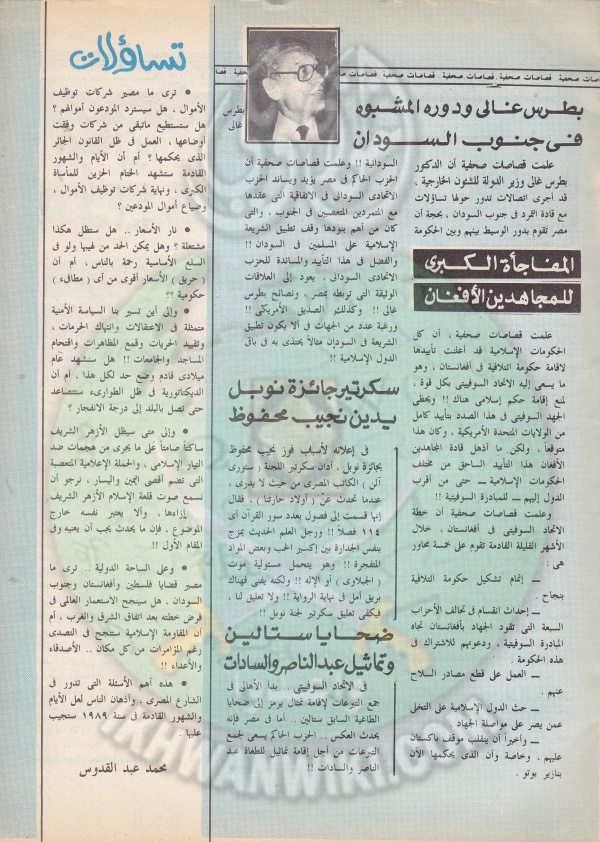 قصاصات صحفية . قصاصات صحفية . قصاصات صحفية . قصاصات صحفية
بطرس غالى ودوره المشبوه
فى جنوب الســودان
بطرس
غالى
علمت قصاصات صحفية أن الدكتور
بطرس غالى وزير الدولة للشئون الخارجية ،
قد أجرى اتصالات تدور حولها تساؤلات
مع قادة التمرد فى جنوب السودان ، بحجة أن
مصر تقوم بدور الوسيط بينهم وبين الحكومة
السودانية !! وعلمت قصاصات صحفية أن
الحزب الحاكم فى مصر يؤيد ويساند الحزب
الاتحادى السودانى فى الاتفاقية التى عقدها
مع المتمردين المتعصبين فى الجنوب ، والتى
كان من أهم بنودها وقف تطبيق الشريعة
الإسلامية على المسلمين فى السودان !!
والفضل فى هذا التأييد والمساندة للحزب
الاتحادى السودانى ، يعود إلى العلاقات
الوثيقة التى تربطه بمصر ، ونصائح بطرس
غالى !! وكذلك الصديق الأمريكى !!
ورغبة عدد من الجهات فى ألا يكون تطبيق
الشريعة فى السودان مثالاً يحتذى به فى باقى
الدول الإسلامية !!
المفاجأة الكبرى
للمجاهدين الأفغان
علمت قصاصات صحفية ، أن كل
الحكومات الإسلامية قد أعلنت تأييدها
لاقامة حكومة ائتلافية فى أفغانستان ، وهو
ما يسعى إليه الاتحاد السوفيتى بكل قوة ،
لمنع إقامة حكم إسلامى هناك !! ويحظى
الجهد السوفيتى فى هذا الصدد بتأييد كامل
من الولايات المتحدة الأمريكية ، وكان هذا
متوقعاً ، ولكن ما أذهل قادة المجاهدين
الأفغان هذا التأييد الساحق من مختلف
الحكومات الإسلامية ــ حتى من أقرب
الدول إليهم ــ للمبادرة السوفيتية !!
وعلمت قصاصات صحفية أن خطة
الاتحاد السوفيتى فى أفغانستان ، خلال
الأشهر القليلة القادمة تقوم على خمسة محاور
هى :
ــ إتمام تشكيل حكومة ائتلافية
بنجاح .
ــ إحداث انقسام فى تحالف الأحزاب
السبعة التى تقود الجهاد بأفغانستان تجاه
المبادرة السوفيتية ، ودعوتهم للاشتراك فى
هذه الحكومة .
ــ العمل على قطع مصادر السلاح
عنهم .
ــ حث الدول الإسلامية على التخلى
عمن يصر على مواصلة الجهاد .
ــ وأخيراً أن ينقلب موقف باكستان
عليهم ، وخاصة وأن الذى يحكمها الآن
بنازير بوتو .
سكرتير جائزة نوبل
يدين نجيب محفوظ
فى إعلانه لأسباب فوز نجيب محفوظ
بجائزة نوبل ، أدان سكرتير اللجنة ( ستورى
آلن ) الكاتب المصرى من حيث لا يدرى ،
عندما تحدث عن ( أولاد حارتنا ) ، فقال
إنها قسمت إلى فصول بعدد سور القرآن أى
١١٤ فصلاً !! ورجل العلم الحديث يمزج
بنفس الجدارة بين إكسير الحب وبعض المواد
المتفجرة !! وهو يتحمل مسئولية موت
( الجبلاوى ) أو الإله !! ولكنه يفنى فهناك
بريق أمل فى نهاية الرواية !! ولا تعليق لنا ،
فيكفى تعليق سكرتير لجنة نوبل !!
ضحايا ستالين
وتماثيل عبد الناصر والسادات
فى الاتحاد السوفيتى .. بدأ الأهالى فى
جمع التبرعات لإقامة تمثال يرمز إلى ضحايا
الطاغية السابق ستالين .. أما فى مصر فإنه
يحدث العكس . الحزب الحاكم يسعى لجمع
التبرعات من أجل إقامة تماثيل للطغاة عبد
الناصر والسادات !!
تساؤلات
● ترى ما مصير شركات توظيف
الأموال ، هل سيسترد المودعون أموالهم ؟
هل ستستطيع ماتبقى من شركات وفقت
أوضاعها ، العمل فى ظل القانون الجائر
الذى يحكمها ؟ أم أن الأيام والشهور
القادمة ستشهد الختام الحزين للمأساة
الكبرى ، ونهاية شركات توظيف الأموال ،
وضياع أموال المودعين ؟
● نار الأسعار .. هل ستظل هكذا
مشتعلة ؟ وهل يمكن الحد من لهيبها ولو فى
السلع الأساسية رحمة بالناس ، أم أن
( حريق ) الأسعار أقوى من أى ( مطافىء )
حكومية ؟؟
● وإلى أين تسير بنا السياسة الأمنية
متمثلة فى الاعتقالات وانتهاك الحرمات ،
وتقييد الحريات وقمع المظاهرات واقتحام
المساجد والجامعات !! هل ستشهد عام
ميلادى قادم وضع حد لكل هذا ، أم أن
الديكتاتورية فى ظل الطوارىء ستتصاعد
حتى تصل بالبلد إلى درجة الانفجار ؟
● وإلى متى سيظل الأزهر الشريف
ساكتاً صامتاً على ما يجرى من هجمات ضد
التيار الإسلامى ، والحملة الإعلامية المتعصبة
التى تضم أقصى اليمين واليسار ، نرجو أن
نسمع صوت قلعة الإسلام الأزهر الشريف
إزاءها ، وألا يعتبر نفسه خارج
الموضوع . فإن ما يحدث يجب أن يعنيه وفى
المقام الأول !!
● وعلى الساحة الدولية .. ترى ما
مصير قضايا فلسطين وأفغانستان وجنوب
السودان ، هل سينجح الاستعمار العالمى فى
فرض خطته بعد اتفاق الشرق والغرب ، أم
أن المقاومة الإسلامية ستنجح فى التصدى
رغم المؤامرات من كل مكان .. الأصدقاء
والأعداء !!
● هذه أهم الأسئلة التى تدور فى
الشارع المصرى ، وأذهان الناس لعل الأيام
والشهور القادمة فى سنة ١٩٨٩ ستجيب
عليها .
محمد عبد القدوس
IKHWANWIKI.COM